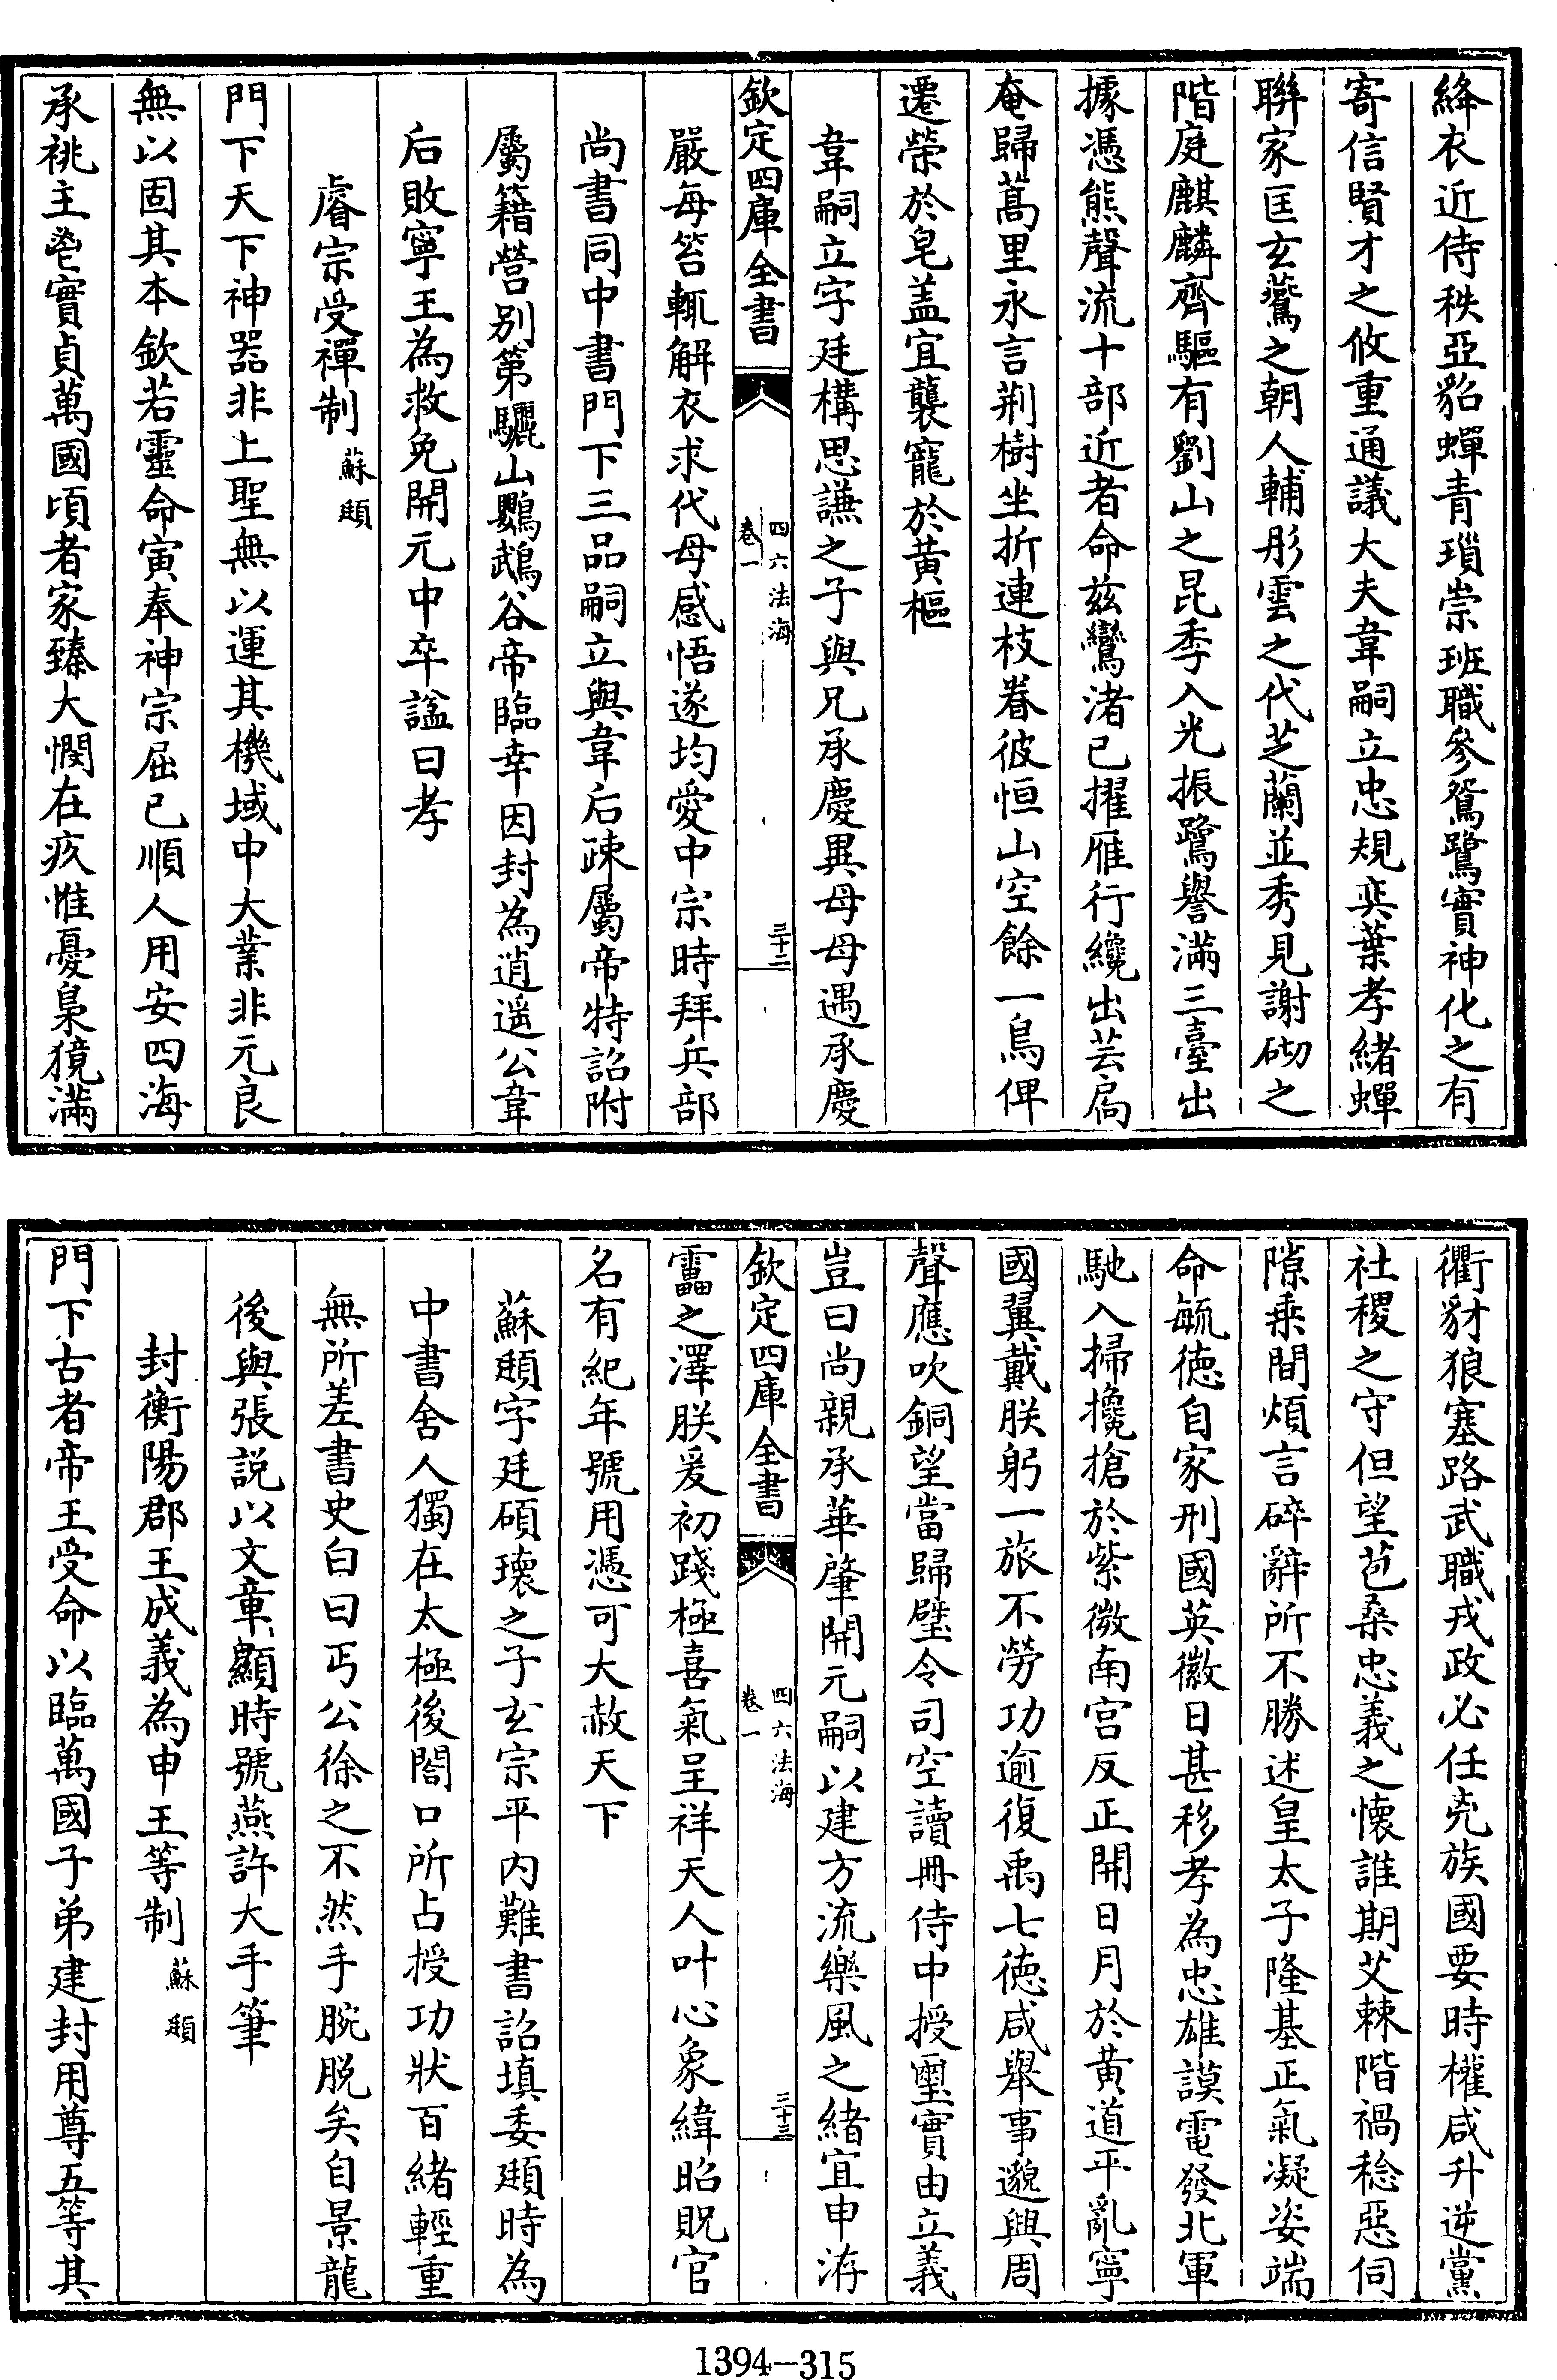 絳衣近侍秩亞貂蟬青瑣崇班職參鴛鷺實神化之有
寄信賢才之攸重通議大夫韋嗣立忠規奕葉孝緒蟬
聯家匡玄鶱之朝人輔彤雲之代芝蘭並秀見謝砌之
階庭麒麟齊驅有劉山之昆季入光振鷺譽滿三臺出
據憑熊聲流十部近者命兹鸞渚已擢雁行纔出芸扃
奄歸蒿里永言荆樹坐折連枝眷彼恒山空餘一鳥俾
遷榮於皂盖宜襲寵於黄樞
韋嗣立字廷構思謙之子與兄承慶異母母遇承慶
欽定四庫全書
四六法海
卷一
三十二
嚴每笞輒解衣求代母感悟遂均愛中宗時拜兵部
尚書同中書門下三品嗣立與韋后疎屬帝特詔附
屬籍營别第驪山鸚鵡谷帝臨幸因封為逍遥公韋
后敗寧王為救免開元中卒諡曰孝
睿宗受禪制
蘇頲
門下天下神器非上聖無以運其機域中大業非元良
無以固其本欽若靈命寅奉神宗屈已順人用安四海
承祧主鬯實貞萬國頃者家臻大憫在疚惟憂梟獍滿
衢豺狼塞路武職戎政必任兇族國要時權咸升逆黨
社稷之守但望苞桑忠義之懷誰期艾棘階禍稔惡伺
隙乗間煩言碎辭所不勝述皇太子隆基正氣凝姿端
命毓德自家刑國英徽日甚移孝為忠雄謨電發北軍
馳入掃攙搶於紫微南宫反正開日月於黄道平亂寧
國翼戴朕躬一旅不勞功逾復禹七德咸舉事邈興周
聲應吹銅望當歸璧令司空讀冊侍中授璽實由立義
豈曰尚親承華肇開元嗣以建方流樂風之緒宜申洊
欽定四庫全書
四六法海
卷一
三十三
靁之澤朕爰初踐極喜氣呈祥天人叶心象緯昭貺官
名有紀年號用憑可大赦天下
蘇頲字廷碩瓌之子玄宗平内難書詔填委頲時為
中書舍人獨在太極後閤口所占授功狀百緒輕重
無所差書史白曰丐公徐之不然手腕脱矣自景龍
後與張説以文章顯時號燕許大手筆
封衡陽郡王成義為申王等制
蘇頲
門下古者帝王受命以臨萬國子弟建封用尊五等其
1394-315